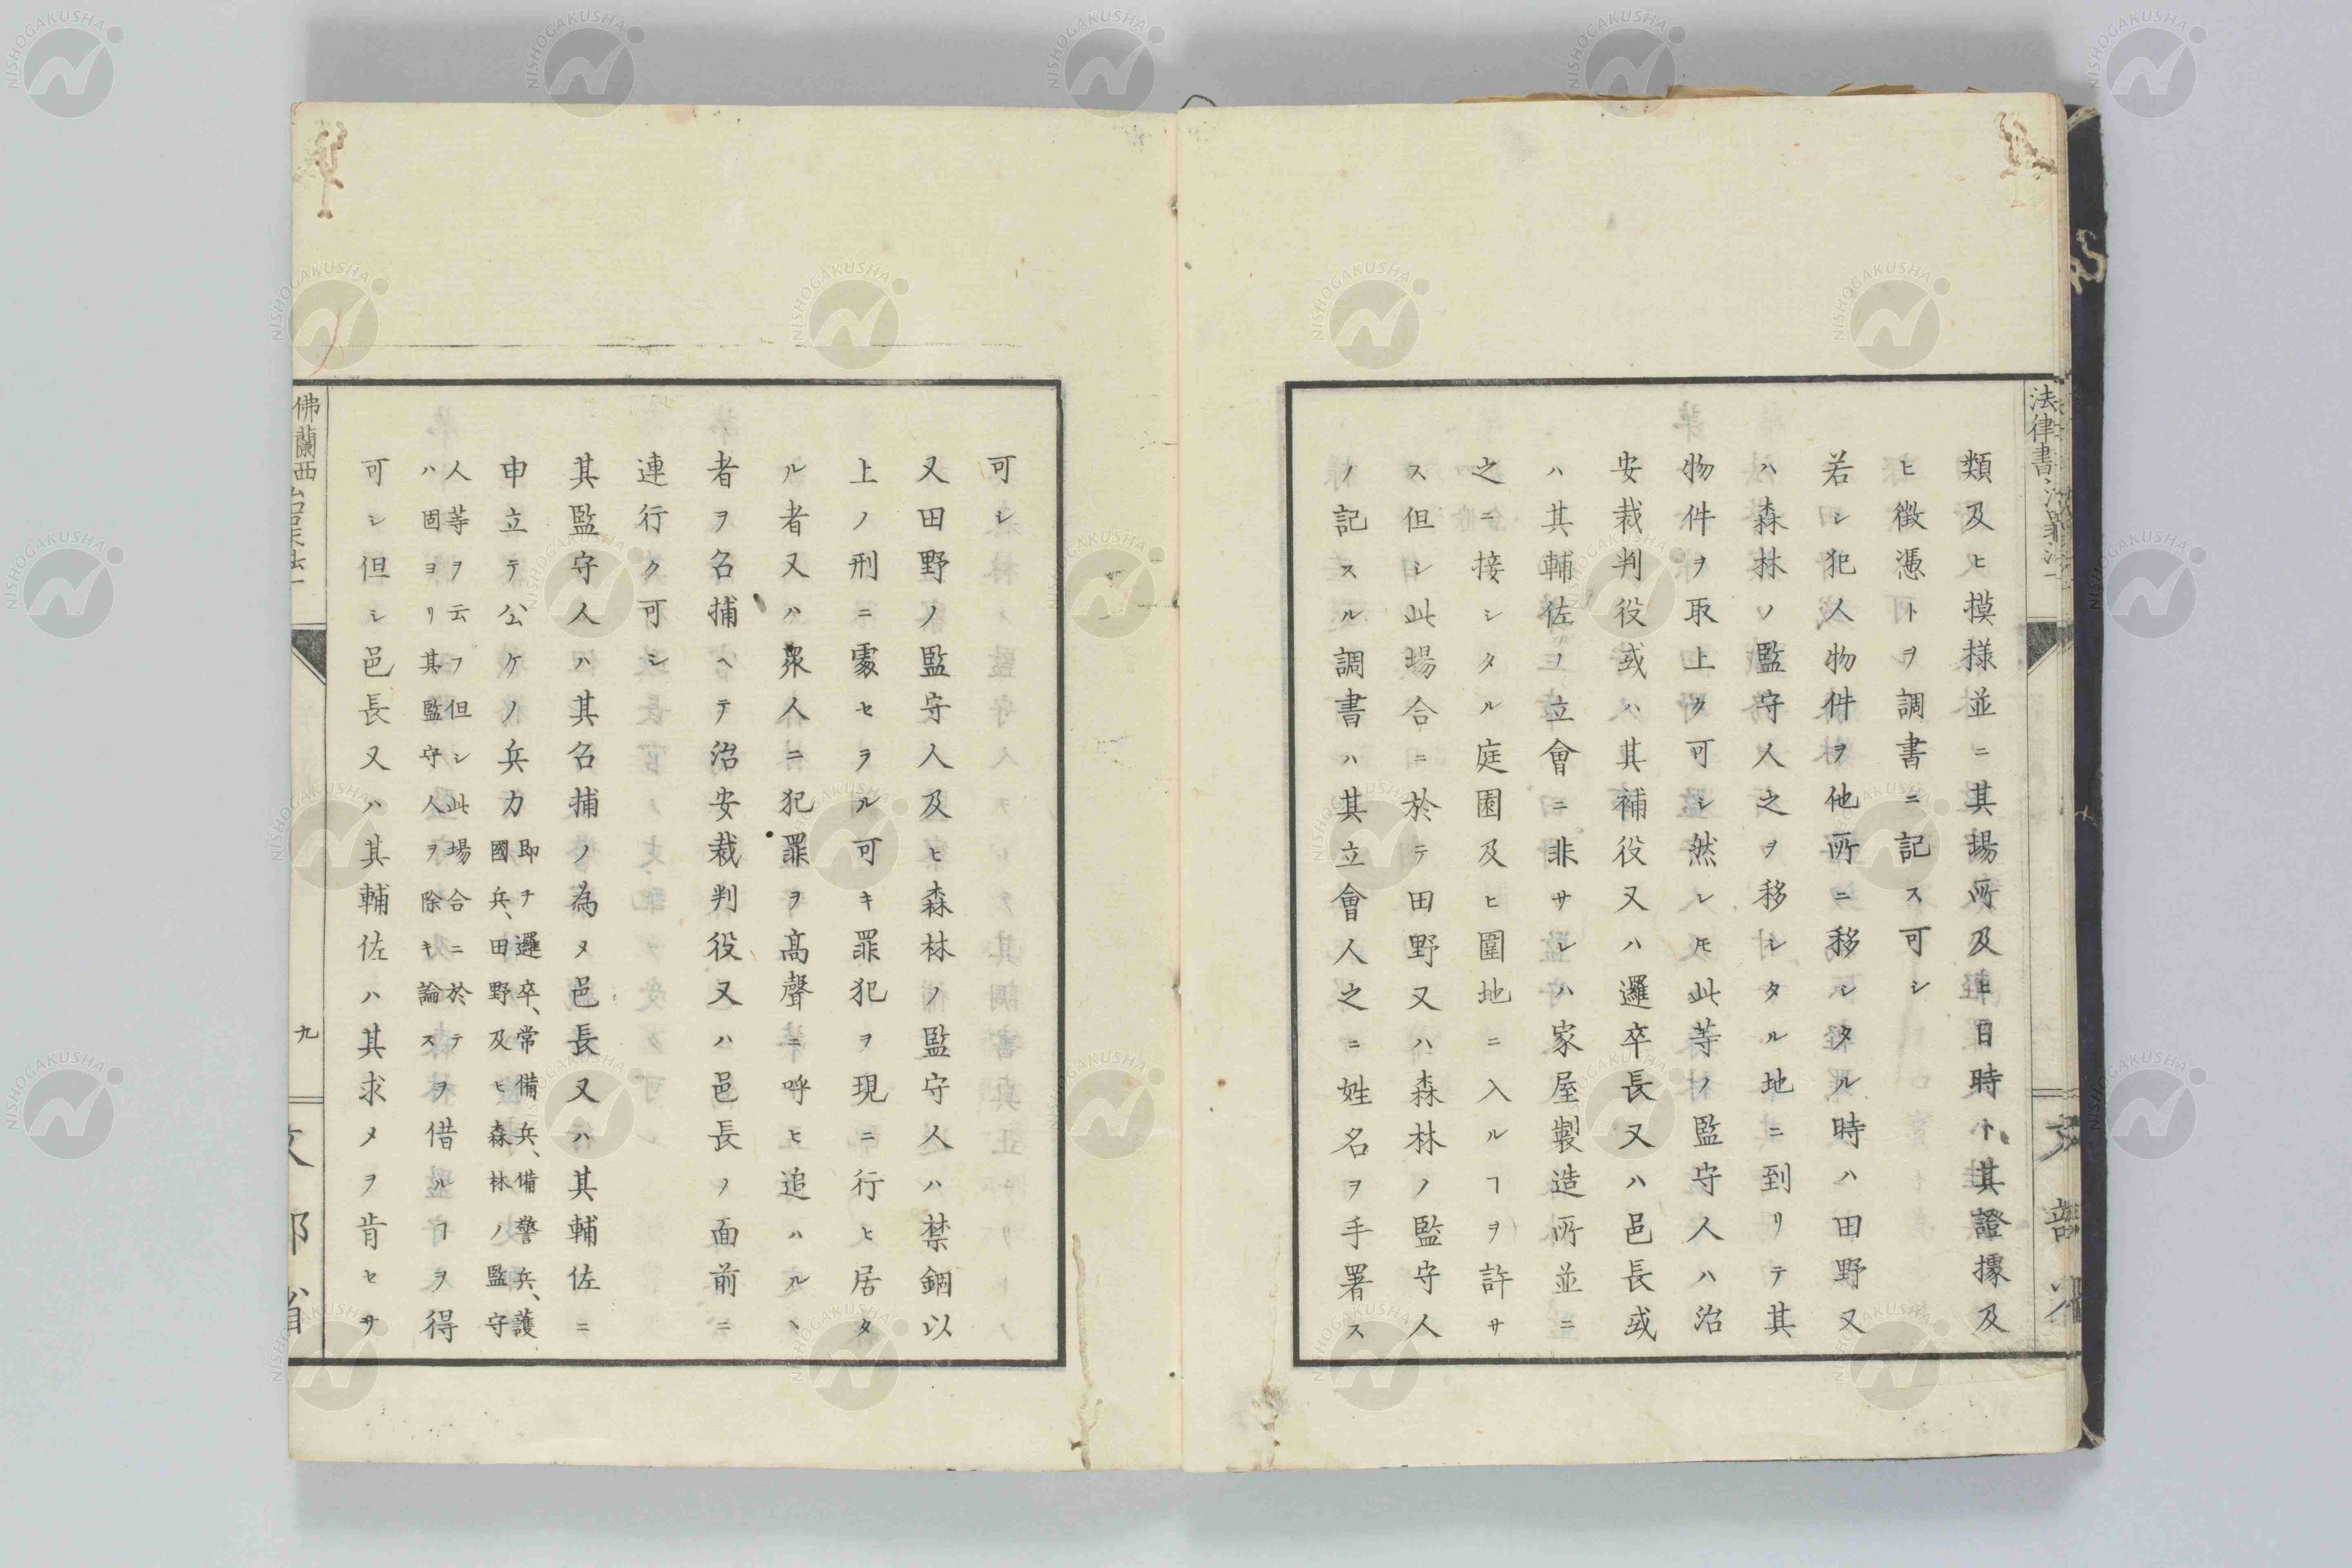 類及ヒ摸様並ニ其場所及ヒ日時ト其證據及
ヒ徴憑トヲ調書ニ記ス可シ
若シ犯人物件ヲ他所ニ移シタル時ハ田野又
ハ森林ノ監守人之ヲ移シタル地ニ到リテ其
物件ヲ取上ク可シ然レ𪜈此等ノ監守人ハ治
安裁判役或ハ其補役又ハ邏卒長又ハ邑長或
ハ其輔佐ノ立會ニ非サレハ家屋製造所並ニ
之ニ接シタル庭園及ヒ圍地ニ入ルヿヲ許サ
ス但シ此場合ニ於テ田野又ハ森林ノ監守人
ノ記スル調書ハ其立會人之ニ姓名ヲ手署ス
可シ
又田野ノ監守人及ヒ森林ノ監守人ハ禁錮以
上ノ刑ニ處セラル可キ罪犯ヲ現ニ行ヒ居タ
ル者又ハ衆人ニ犯罪ヲ高聲ニ呼ヒ追ハル丶
者ヲ名捕ヘテ治安裁判役又ハ邑長ノ面前ニ
連行ク可シ
其監守人ハ其名捕ノ為メ邑長又ハ其輔佐ニ
申立テ公ケノ兵力即チ邏卒、常備兵、備警兵、護
國兵、田野及ヒ森林ノ監守
人等ヲ云フ但シ此場合ニ於テ
ハ固ヨリ其監守人ヲ除キ論スヲ借ルヿヲ得
可シ但シ邑長又ハ其輔佐ハ其求メヲ肯セサ
佛蘭西
九
法律書
NISHOGAKUSHA